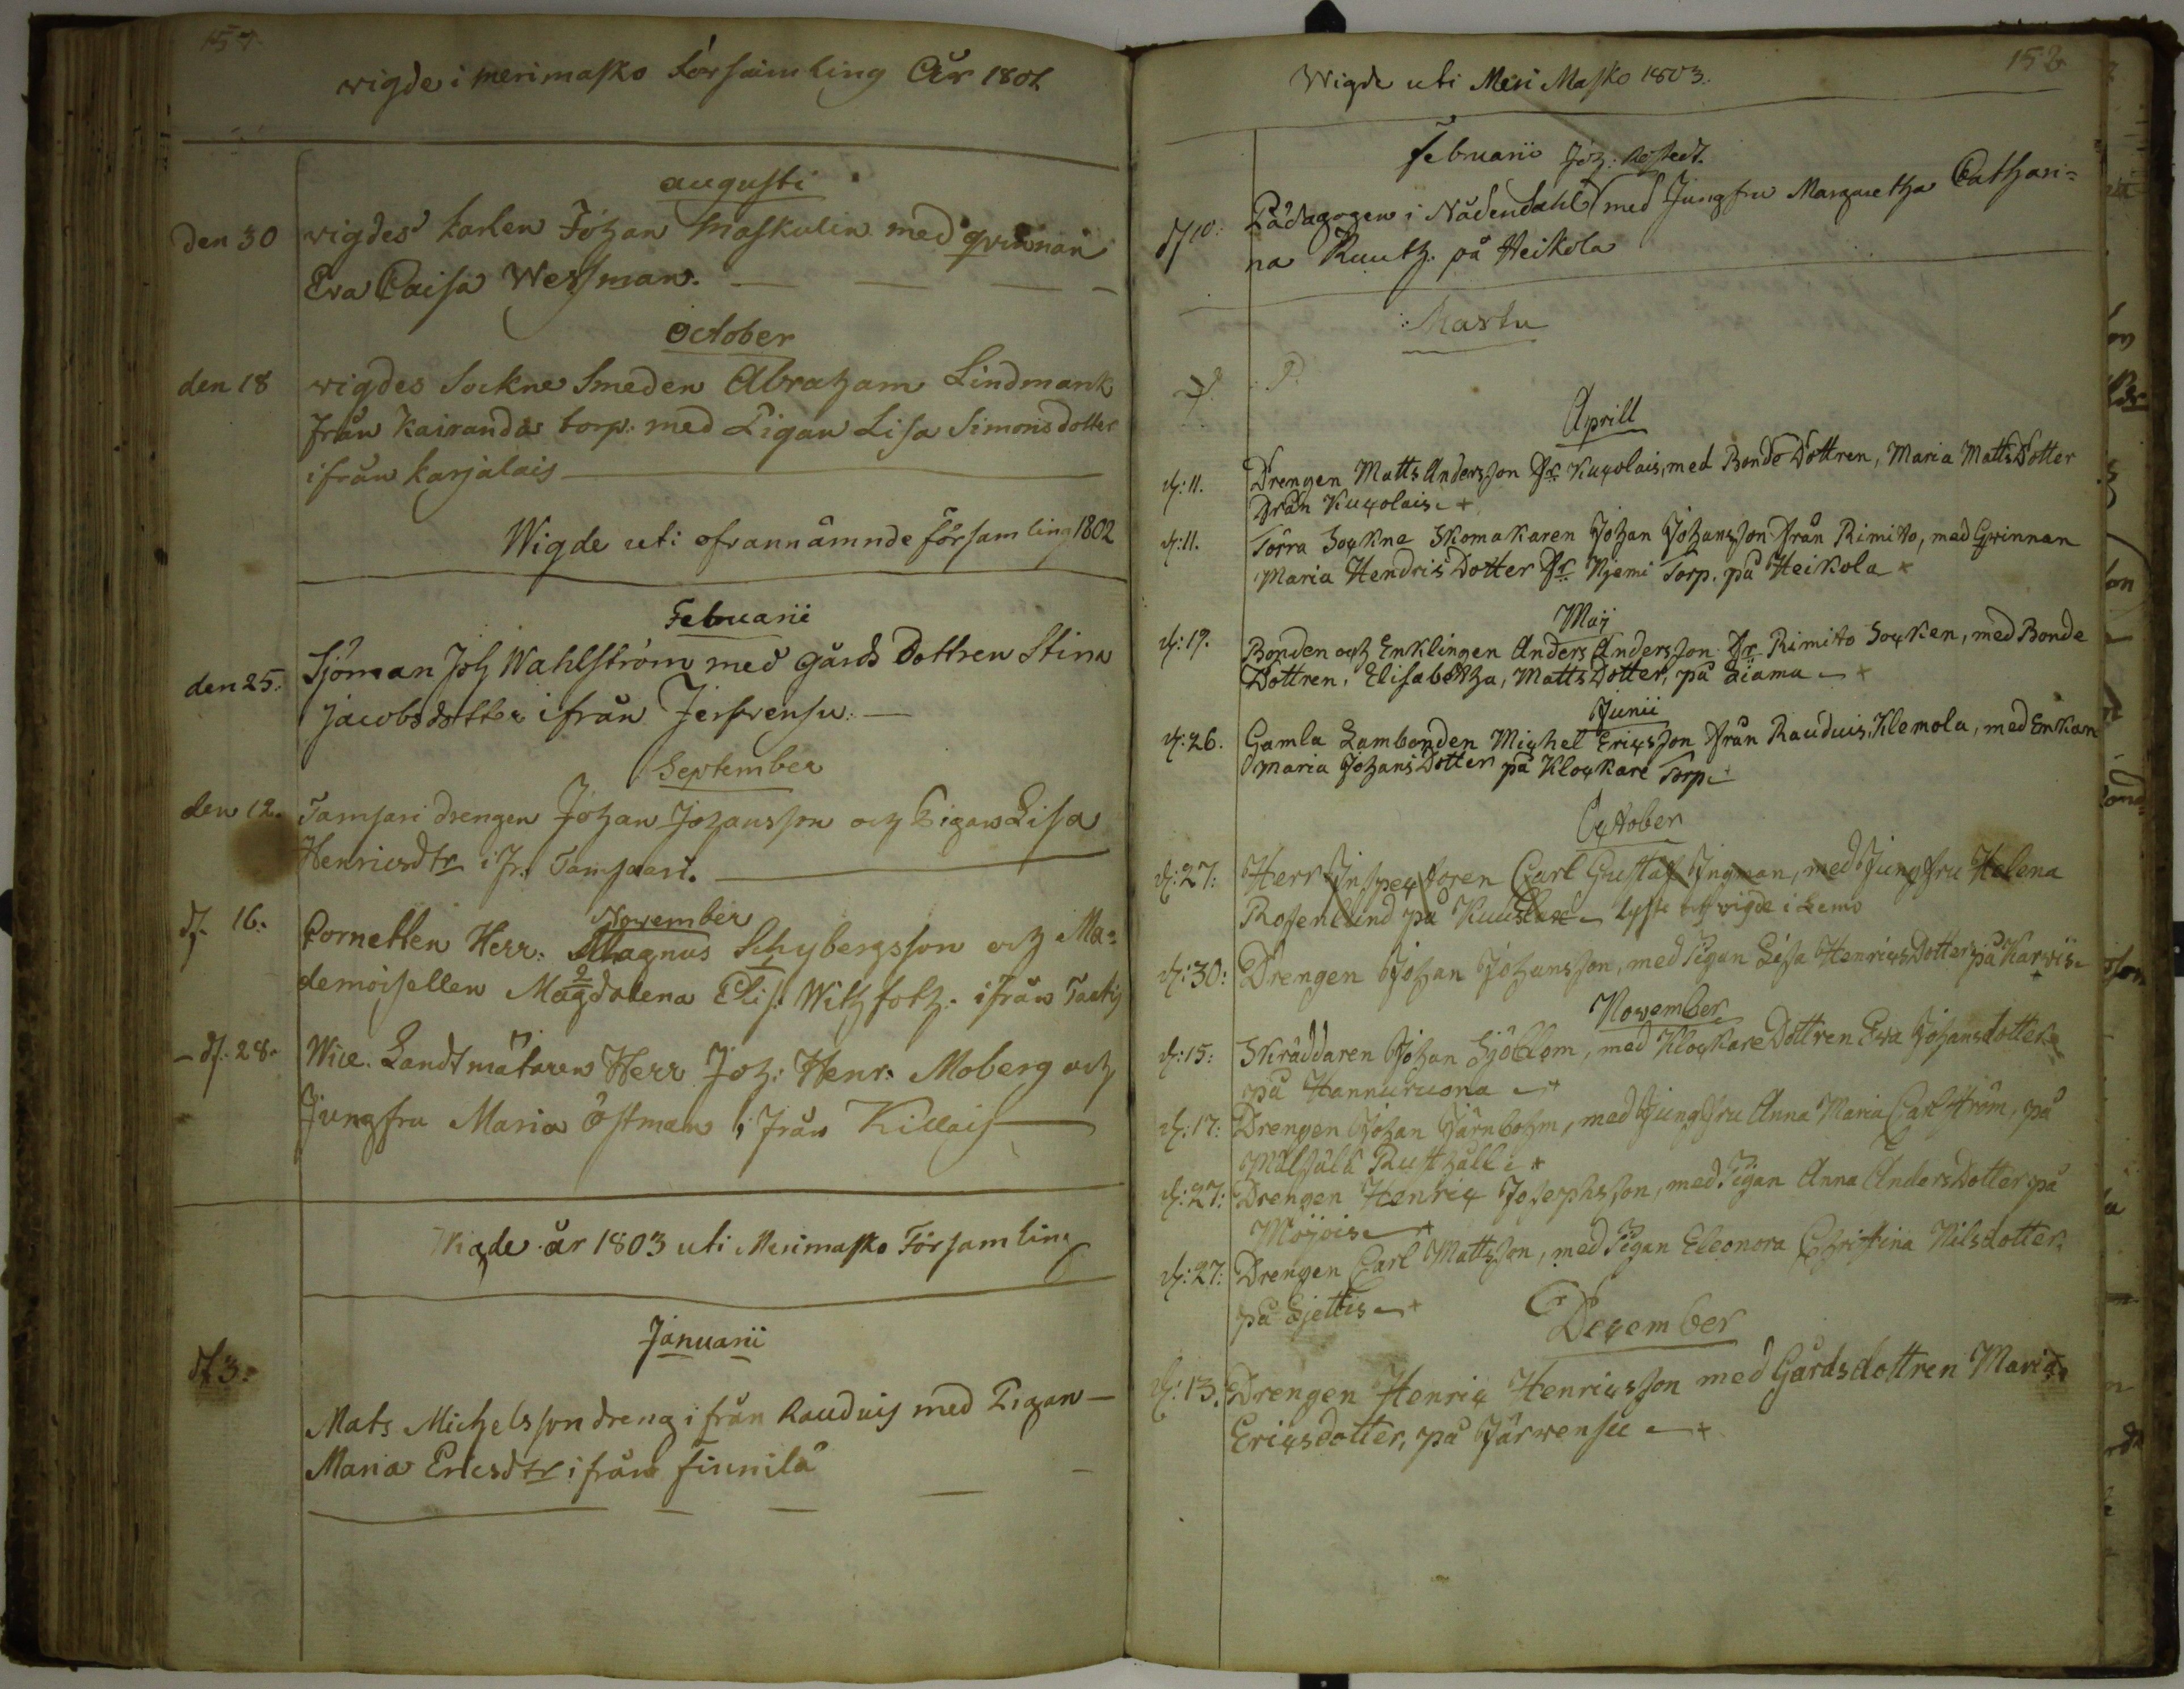 157.
wigde i merimasko Församling År 1801
augusti
den 30 wigdes karlen Johan Maskulin med qvinnan
Eva Caisa Wessman.
October
den 18 wigdes Sockne Smeden Abraham Lindmark
från Kairanda torp. med Pigan Lisa Simonsdotter
ifrån karjalais
Wigde uti ofvannämnde församling 1802
Februarii
den 25. Sjöman Joh Wahlström med gårds Dottren Stina
jacobsdotter ifrån Jerfvensu.
September
den 12. Tamsari drengen Johan Johansson och Pigan Lisa
Henricsdtr ifr. Tamsaari.
November
d. 16. Cornetten Herr. Magnus Schybergsson och Ma=
demoisellen Magdalena Elis. Witzfotz. ifrån Tactis
d. 28. Wice. Landtmätaren Herr Joh: Henr: Moberg och
Jungfru Maria Östman ifrån Killais
Wigde år 1803 uti Merimasko Församling
Januarii
d. 3. Mats Michelsson dreng ifrån Rauduis med Pigan
Maria Ericsdtr ifrån finnilä
152.
Wigde uti Meri Masko 1803.
Februarii Joh:
d 10: Pädagogen i Nådendahl med Jungfru Margaretha Cathari=
na Ruuth. på Heikola
Martii
Aprill
d: 11. Drengen Matts Andersson fr Kucolais, med Bonde Dottren, Maria Matts Dotter
Från Kucolais
d: 11. Förra Sockne Skomakaren Johan Johansson från Rimito, med Qvinnan
Maria Hendris Dotter fr Njemi Torp. på Heikola
Maÿ
d: 19. Bonden och Enklingen Anders Andersson fr Rimito Socken, med Bonde
Dottren, Elisabetha, Matts Dotter, på äiama
Junii
d: 26. Gamla Lambonden Michel Ericsson från Rauduis, Klemola, med Enkan
Maria Johans Dotter på Klockare Torp
October
d: 27: Herr Inspectoren Carl Gustaf Ingman, med Jungfru Helena
Rosenlund på Kuusluo lyste och vigde i Lemo
d: 30: Drengen Johan Johansson, med Pigan Lisa Henrics Dotter på Karvis
November
d: 15: Skräddaren Johan Sjöblom, med Klockare Dottren Ewa Johansdotter
på Hannuruona
d: 17: Drengen Johan Järnbohm, med Jungfru Anna Maria Carlström, på
Mälsälä Rusthåll
d: 27: Drengen Henric Josephsson, med Pigan Anna Anders Dotter på
Mojois
d: 27: Drengen Carl Mattsson, med Pigan Eleonora Christina Nilsdotter.
på Ejettis
December
d: 13. Drengen Henric Henricsson med Gårdsdottren Maria
Ericsdotter, på Järwensu